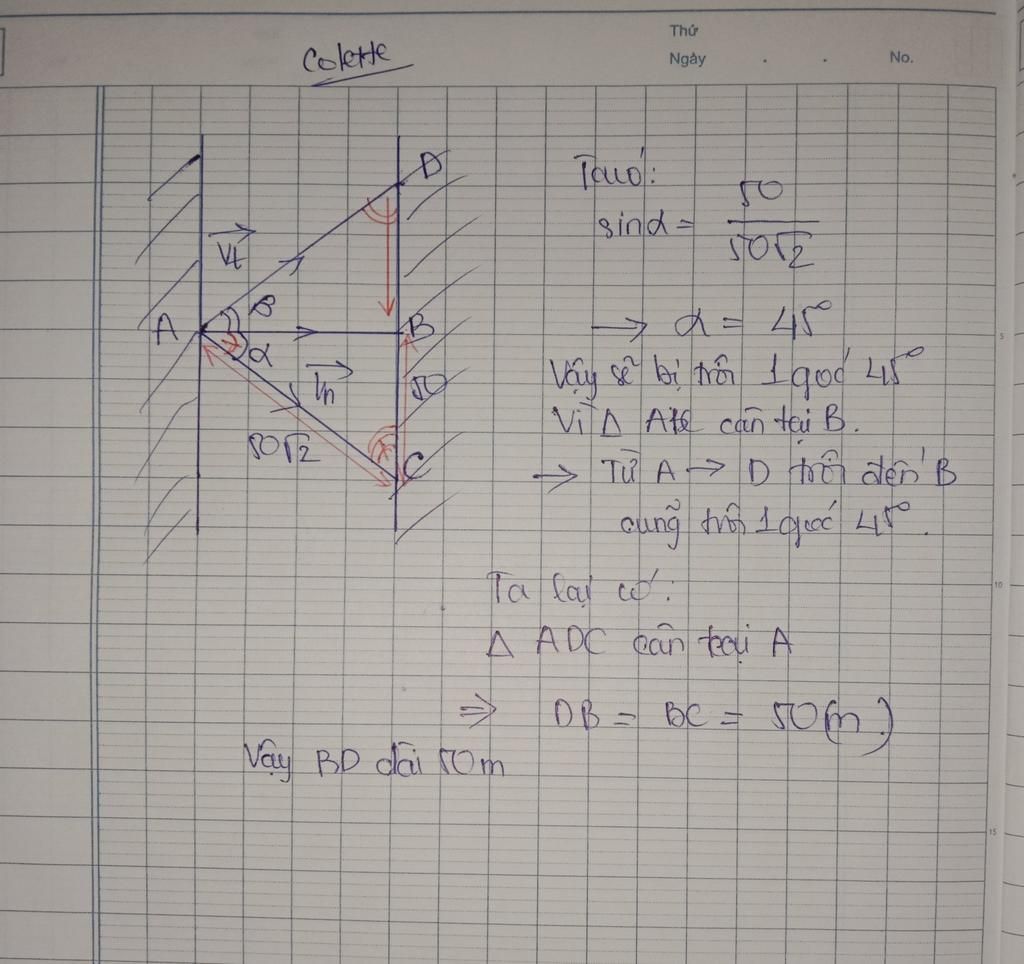 Thứ
Ngày . . No.
Colette
D
Vt
β
A
B
α
Vn
50
50√2
C
Ta có:
sinα = 50/50√2
→ α = 45°
Vậy sẽ bị trôi 1 góc 45°
Vì Δ cân tại B.
→ Từ A → D trôi đến B
cũng trôi 1 góc 45°.
Ta lại có:
Δ ADC cân tại A
⇒ DB = BC = 50(m)
Vậy BD dài 50m
5
10
15